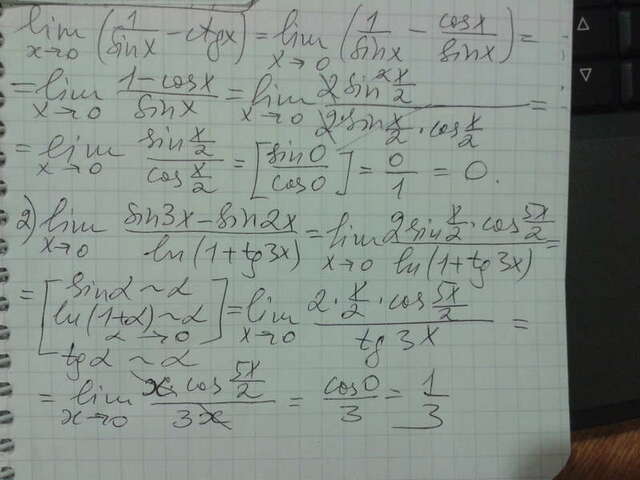 lim x→0 (1/sinx − ctgx) = lim x→0 (1/sinx − cosx/sinx) =
= lim x→0 (1−cosx)/sinx = lim x→0 (2sin²x/2)/(2sin x/2 · cos x/2) =
= lim x→0 (sin x/2)/(cos x/2) = [sin0/cos0] = 0/1 = 0.
2) lim x→0 (sin3x − sin2x)/(ln(1+tg3x)) = lim x→0 (2sin x/2 · cos 5x/2)/(ln(1+tg3x)) =
= [sinα ~ α
ln(1+α) ~ α
α→0
tgα ~ α] = lim x→0 (2 · x/2 · cos 5x/2)/(tg3x) =
= lim x→0 (x cos 5x/2)/(3x) = cos0/3 = 1/3